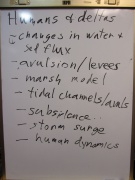 Humans & deltas
- changes in water &
sed flux
- avulsion/levees
- marsh model
- tidal channels/
- subsidence..
- storm surge
- human dynamics